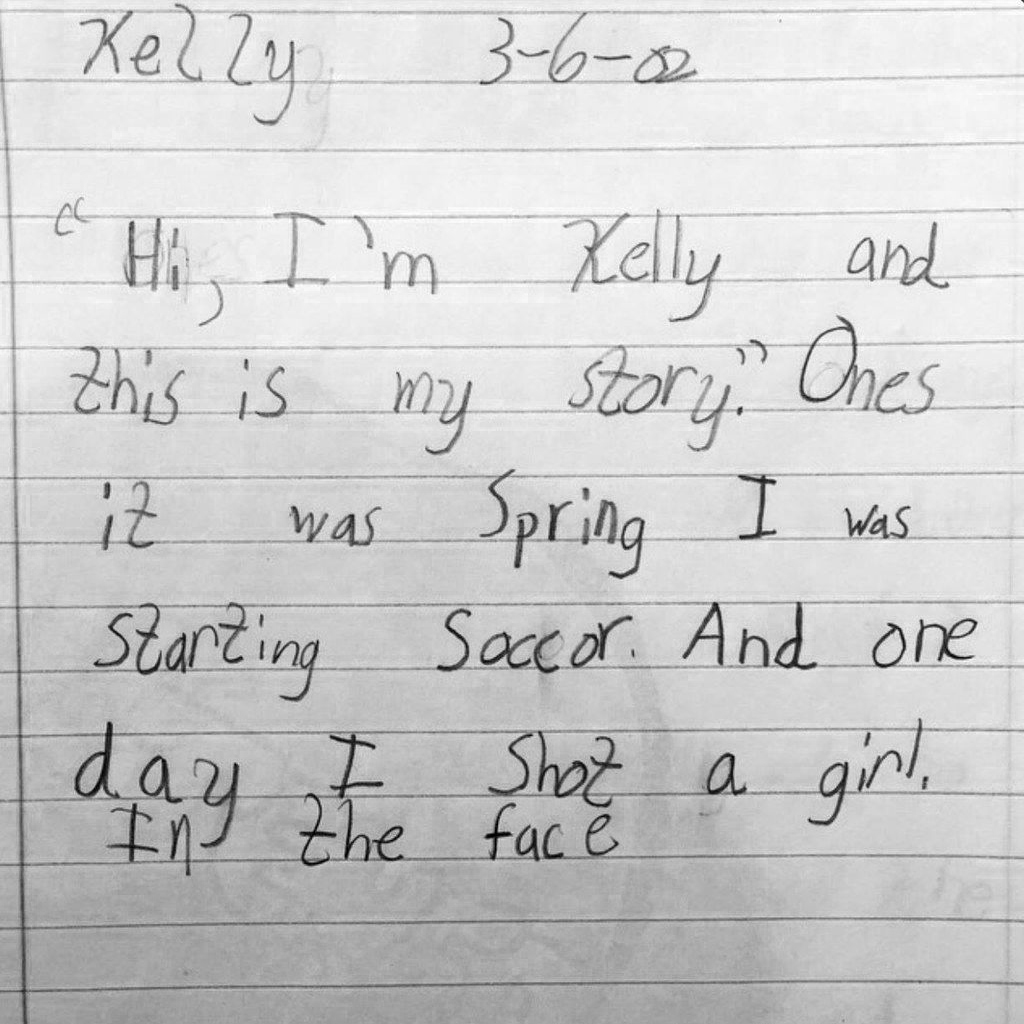 Kelly 3-6-02
"Hi, I'm Kelly and
this is my story." Ones
it was Spring I was
starting Soccor. And one
day I Shot a girl.
In the face